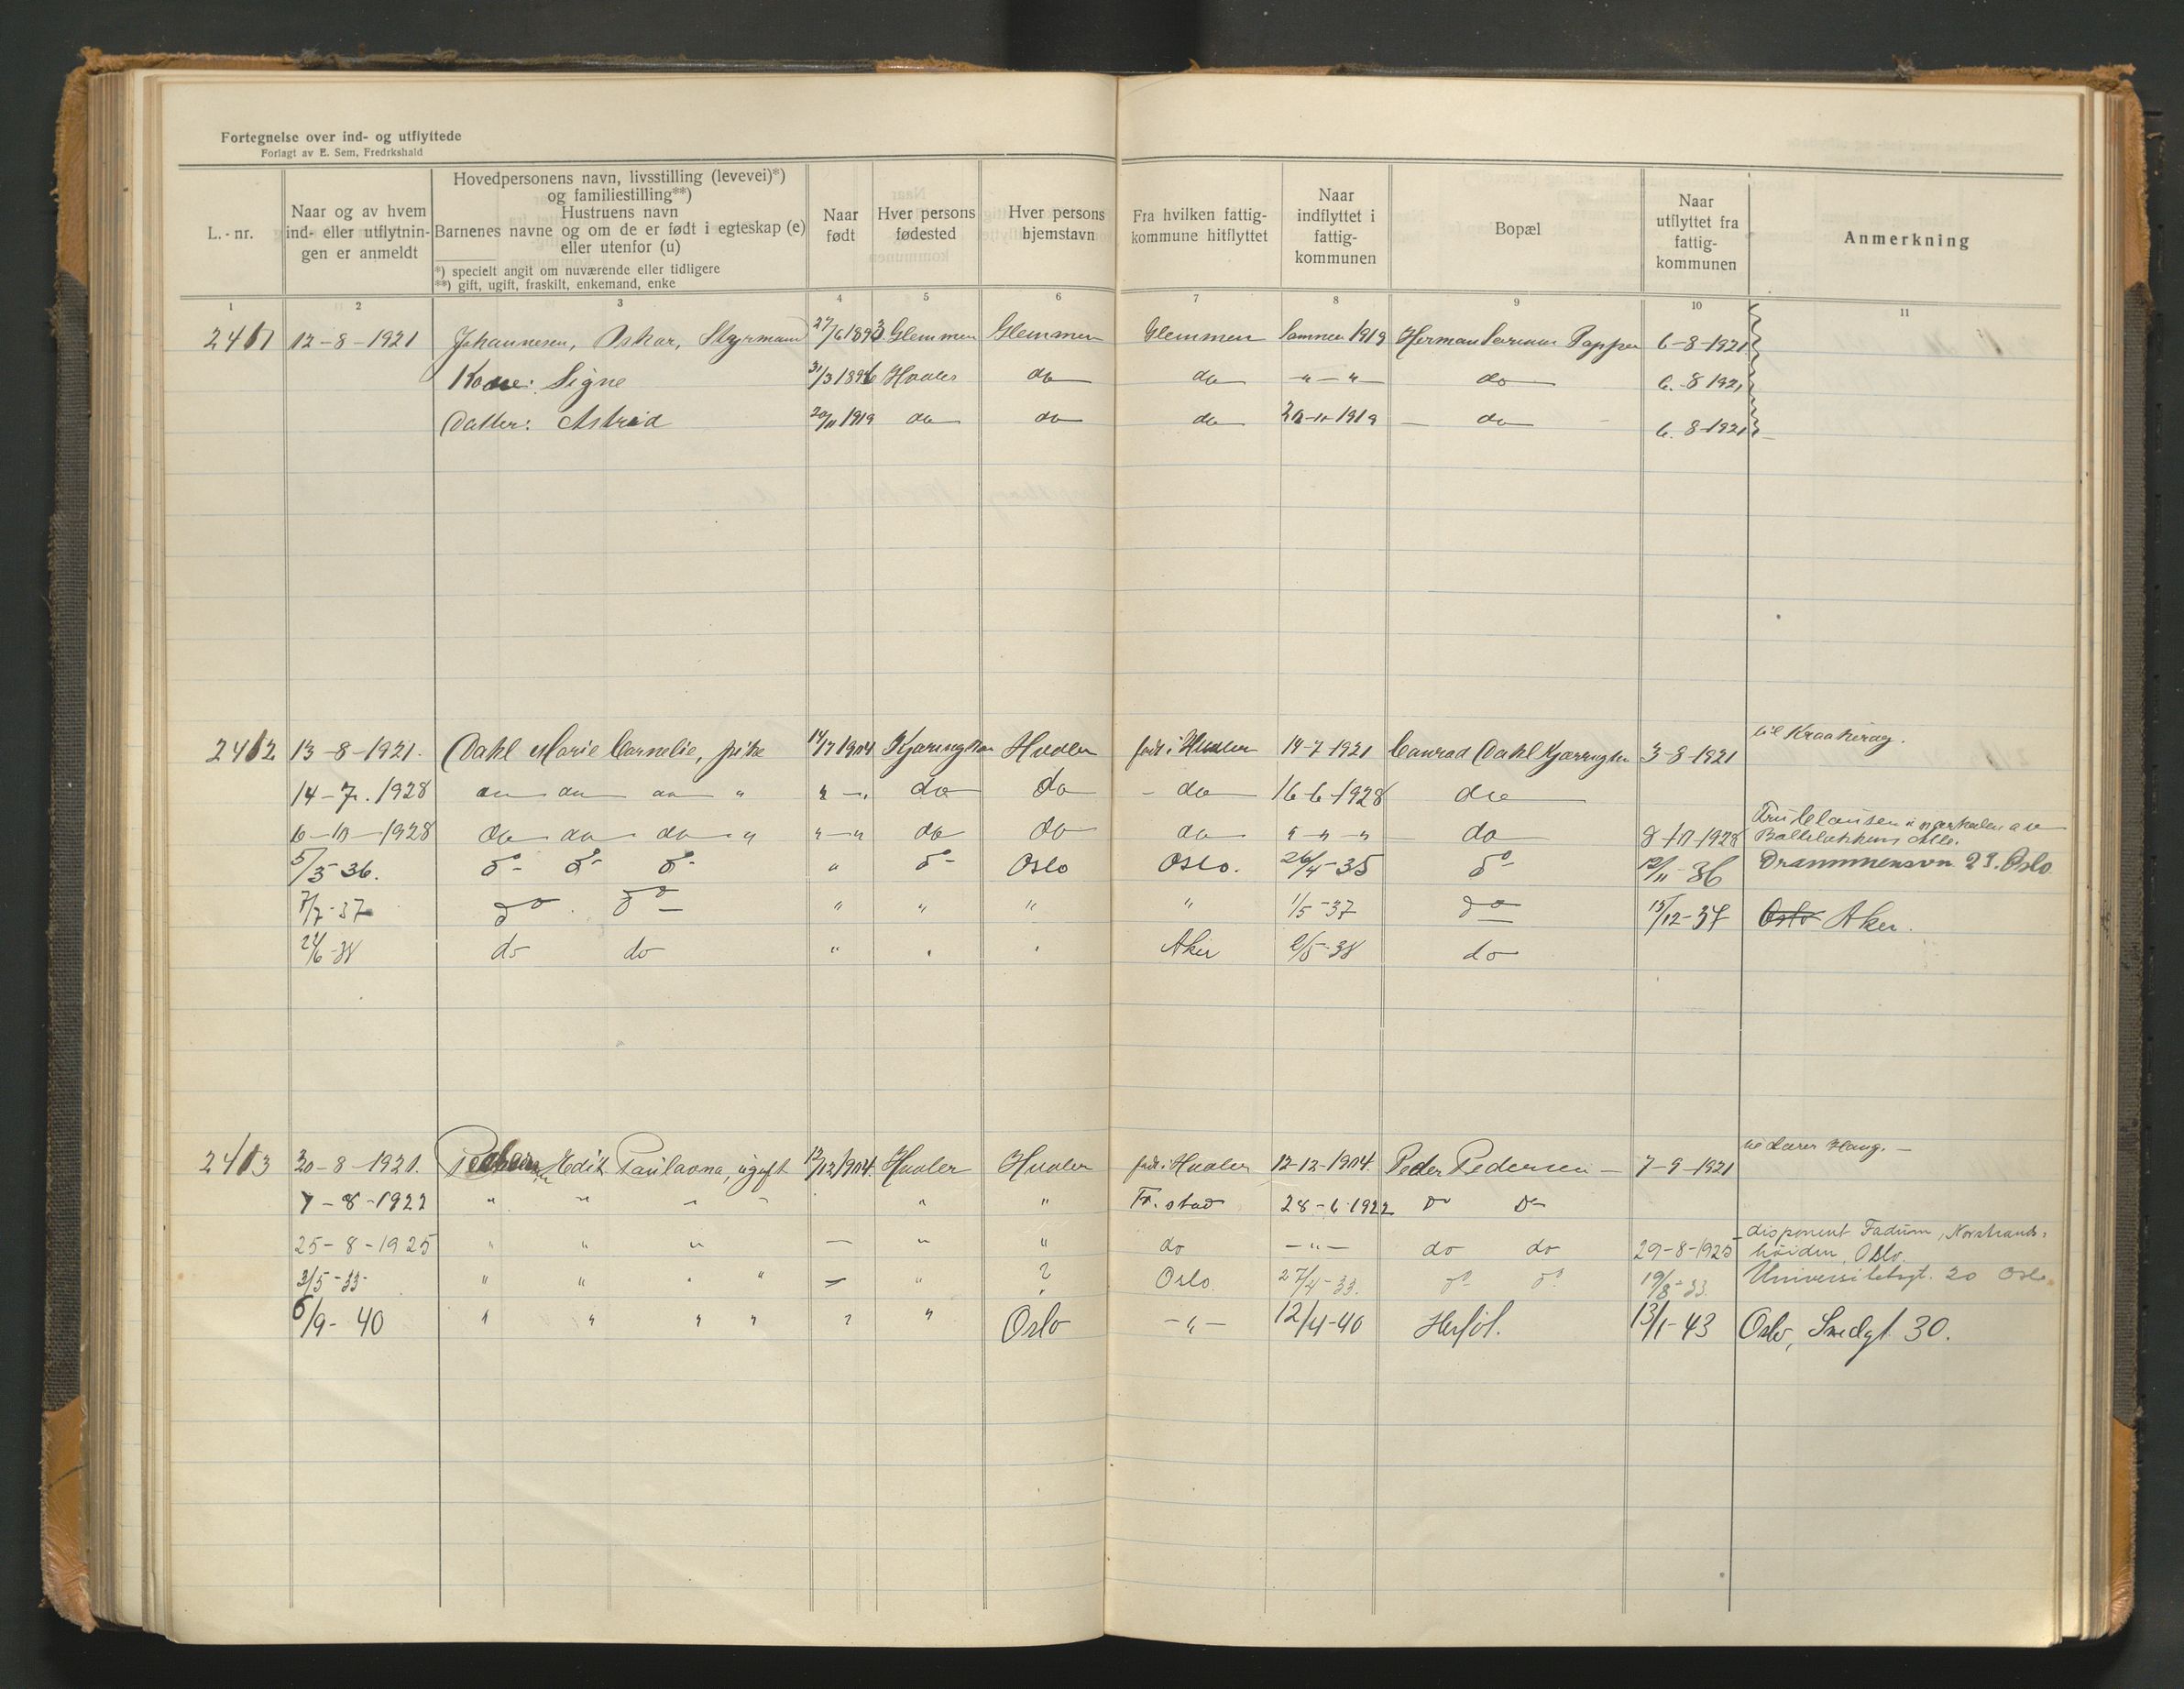 Fortegnelse over ind- og utflyttede
Forlagt av E. Sem, Fredrkshald
L.-nr.
Naar og av hvem ind- eller utflytnin-gen er anmeldt
Hovedpersonens navn, livsstilling (levevei)*) og familiestilling**)
Hustruens navn
Barnenes navne og om de er født i egteskap (e) eller utenfor (u)
*) specielt angit om nuværende eller tidligere
**) gift, ugift, fraskilt, enkemand, enke
Naar født
Hver persons fødested
Hver persons hjemstavn
Fra hvilken fattig-kommune hitflyttet
Naar indflyttet i fattig-kommunen
Bopæl
Naar utflyttet fra fattig-kommunen
Anmerkning
1 2 3 4 5 6 7 8 9 10 11
2411 12-8-1921 Johannesen, Oskar, Styrmand 27/6 1893 Glemmen Glemmen Glemmen Sommer 1919 Herman Papper 6-8-1921
Kone: Signe 31/3 1896 Hvaler do do " - " do 6.-8 1921
Datter: Astrid 20/11 1919 do do do 20-11-1919 do 6. 8-1921
2412 13-8-1921. Dahl Marie Cornelie, pike 14/7 1904 Kjæringholmen Hvaler født i Hvaler 14-7-1921 Conrad Dahl 3-8-1921 til Kraakerøy.
14-7.-1928 do do do " " - " do do do 16-6-1928 do
6-10-1928 do do do " " - " do do do " - " - " do 8-10-1928 Fru Clausen
5/5 36. do do do " do Oslo Oslo. 26/4-35 do 12/11-36 Drammensvn 23. Oslo
7/7-37 do do " " " " 1/5-37 do 15/12-37 Oslo Aker.
24/6-38 do do " " " Aker 2/5-38 do
2413 30-8-1921. Pedersen, Edit Paulaona, ugift 12/12 1904. Hvaler Hvaler født i Hvaler 12-12-1904. Peder Pedersen - 7-9-1921 Haug. -
7-8-1922 " " " " " " Fr. stad 28-6-1922 Do Do
25-8-1925 " " " - " " do - " - do do 29-8-1925 disponent Fadum, Norstrands-
høiden, Oslo.
3/5-33- " " " " - " ? Oslo. 27/4-33. do do 19/8-33. Universitetsgt. 20 Oslo.
6/9-40 " " " " " " Oslo - " - 12/4-40 Herføl. 13/1-43 Oslo, Smedgt 30.